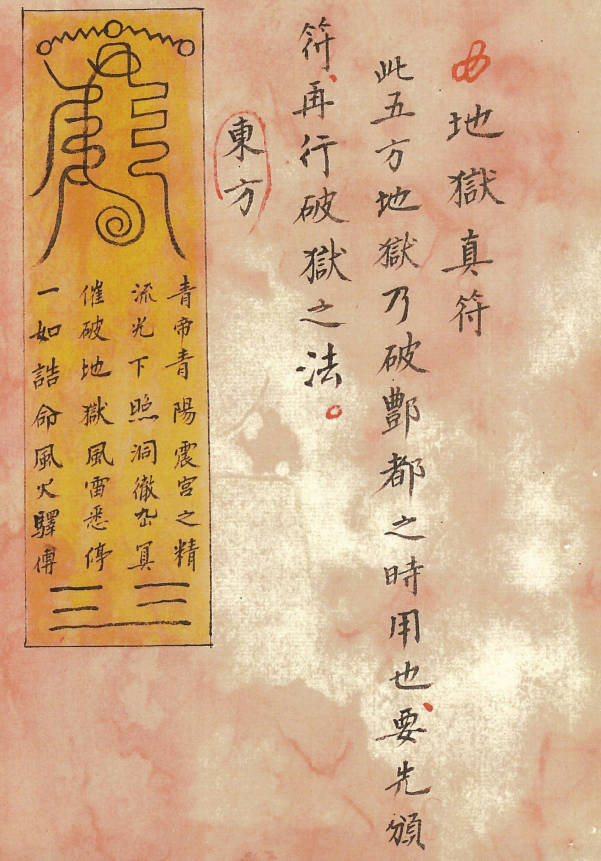 地獄真符
此五方地獄乃破酆都之時用也、要先頒
符、再行破獄之法。
東方
青帝青陽震宮之精
流光下照洞徹冥
催破地獄風雷悉停
一如誥命風火驛傳